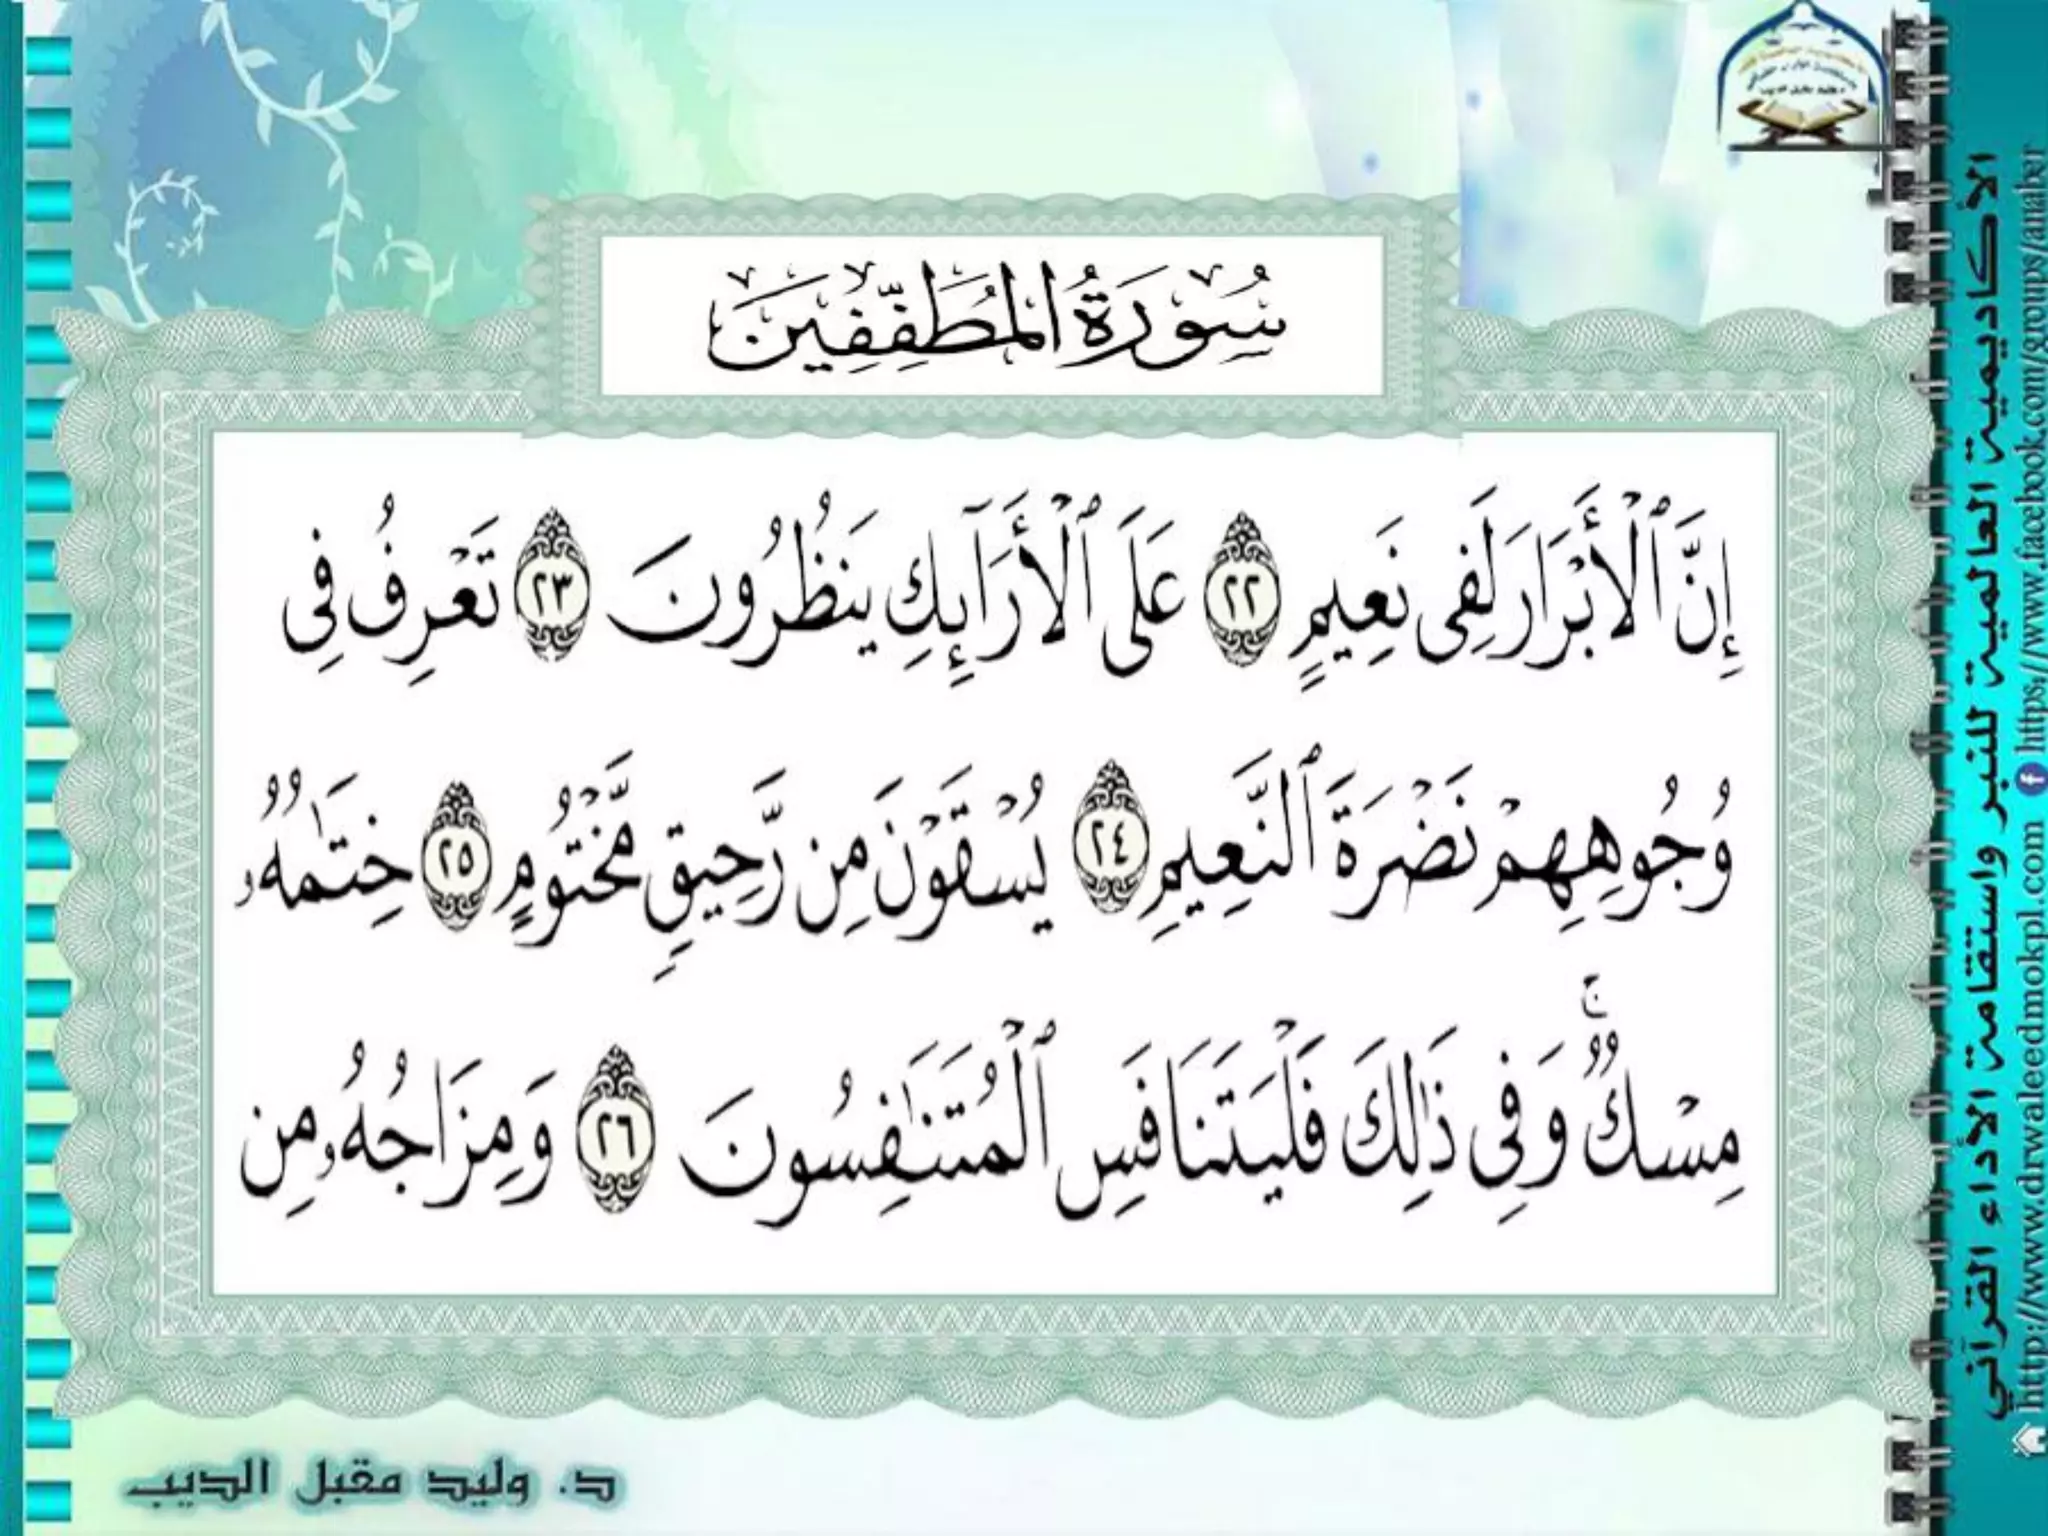 سُورَةُ المُطَفِّفِينَ
إِنَّ ٱلْأَبْرَارَ لَفِى نَعِيمٍ ٢٢ عَلَى ٱلْأَرَآئِكِ يَنظُرُونَ ٢٣ تَعْرِفُ فِى
وُجُوهِهِمْ نَضْرَةَ ٱلنَّعِيمِ ٢٤ يُسْقَوْنَ مِن رَّحِيقٍ مَّخْتُومٍ ٢٥ خِتَـٰمُهُۥ
مِسْكٌ ۚ وَفِى ذَٰلِكَ فَلْيَتَنَافَسِ ٱلْمُتَنَـٰفِسُونَ ٢٦ وَمِزَاجُهُۥ مِن
د. وليد مقبل الديب
الأكاديمية العالمية للنبر واستقامة الأداء القرآني
http://www.drwaleedmokpl.com https://www.facebook.com/groups/anaber